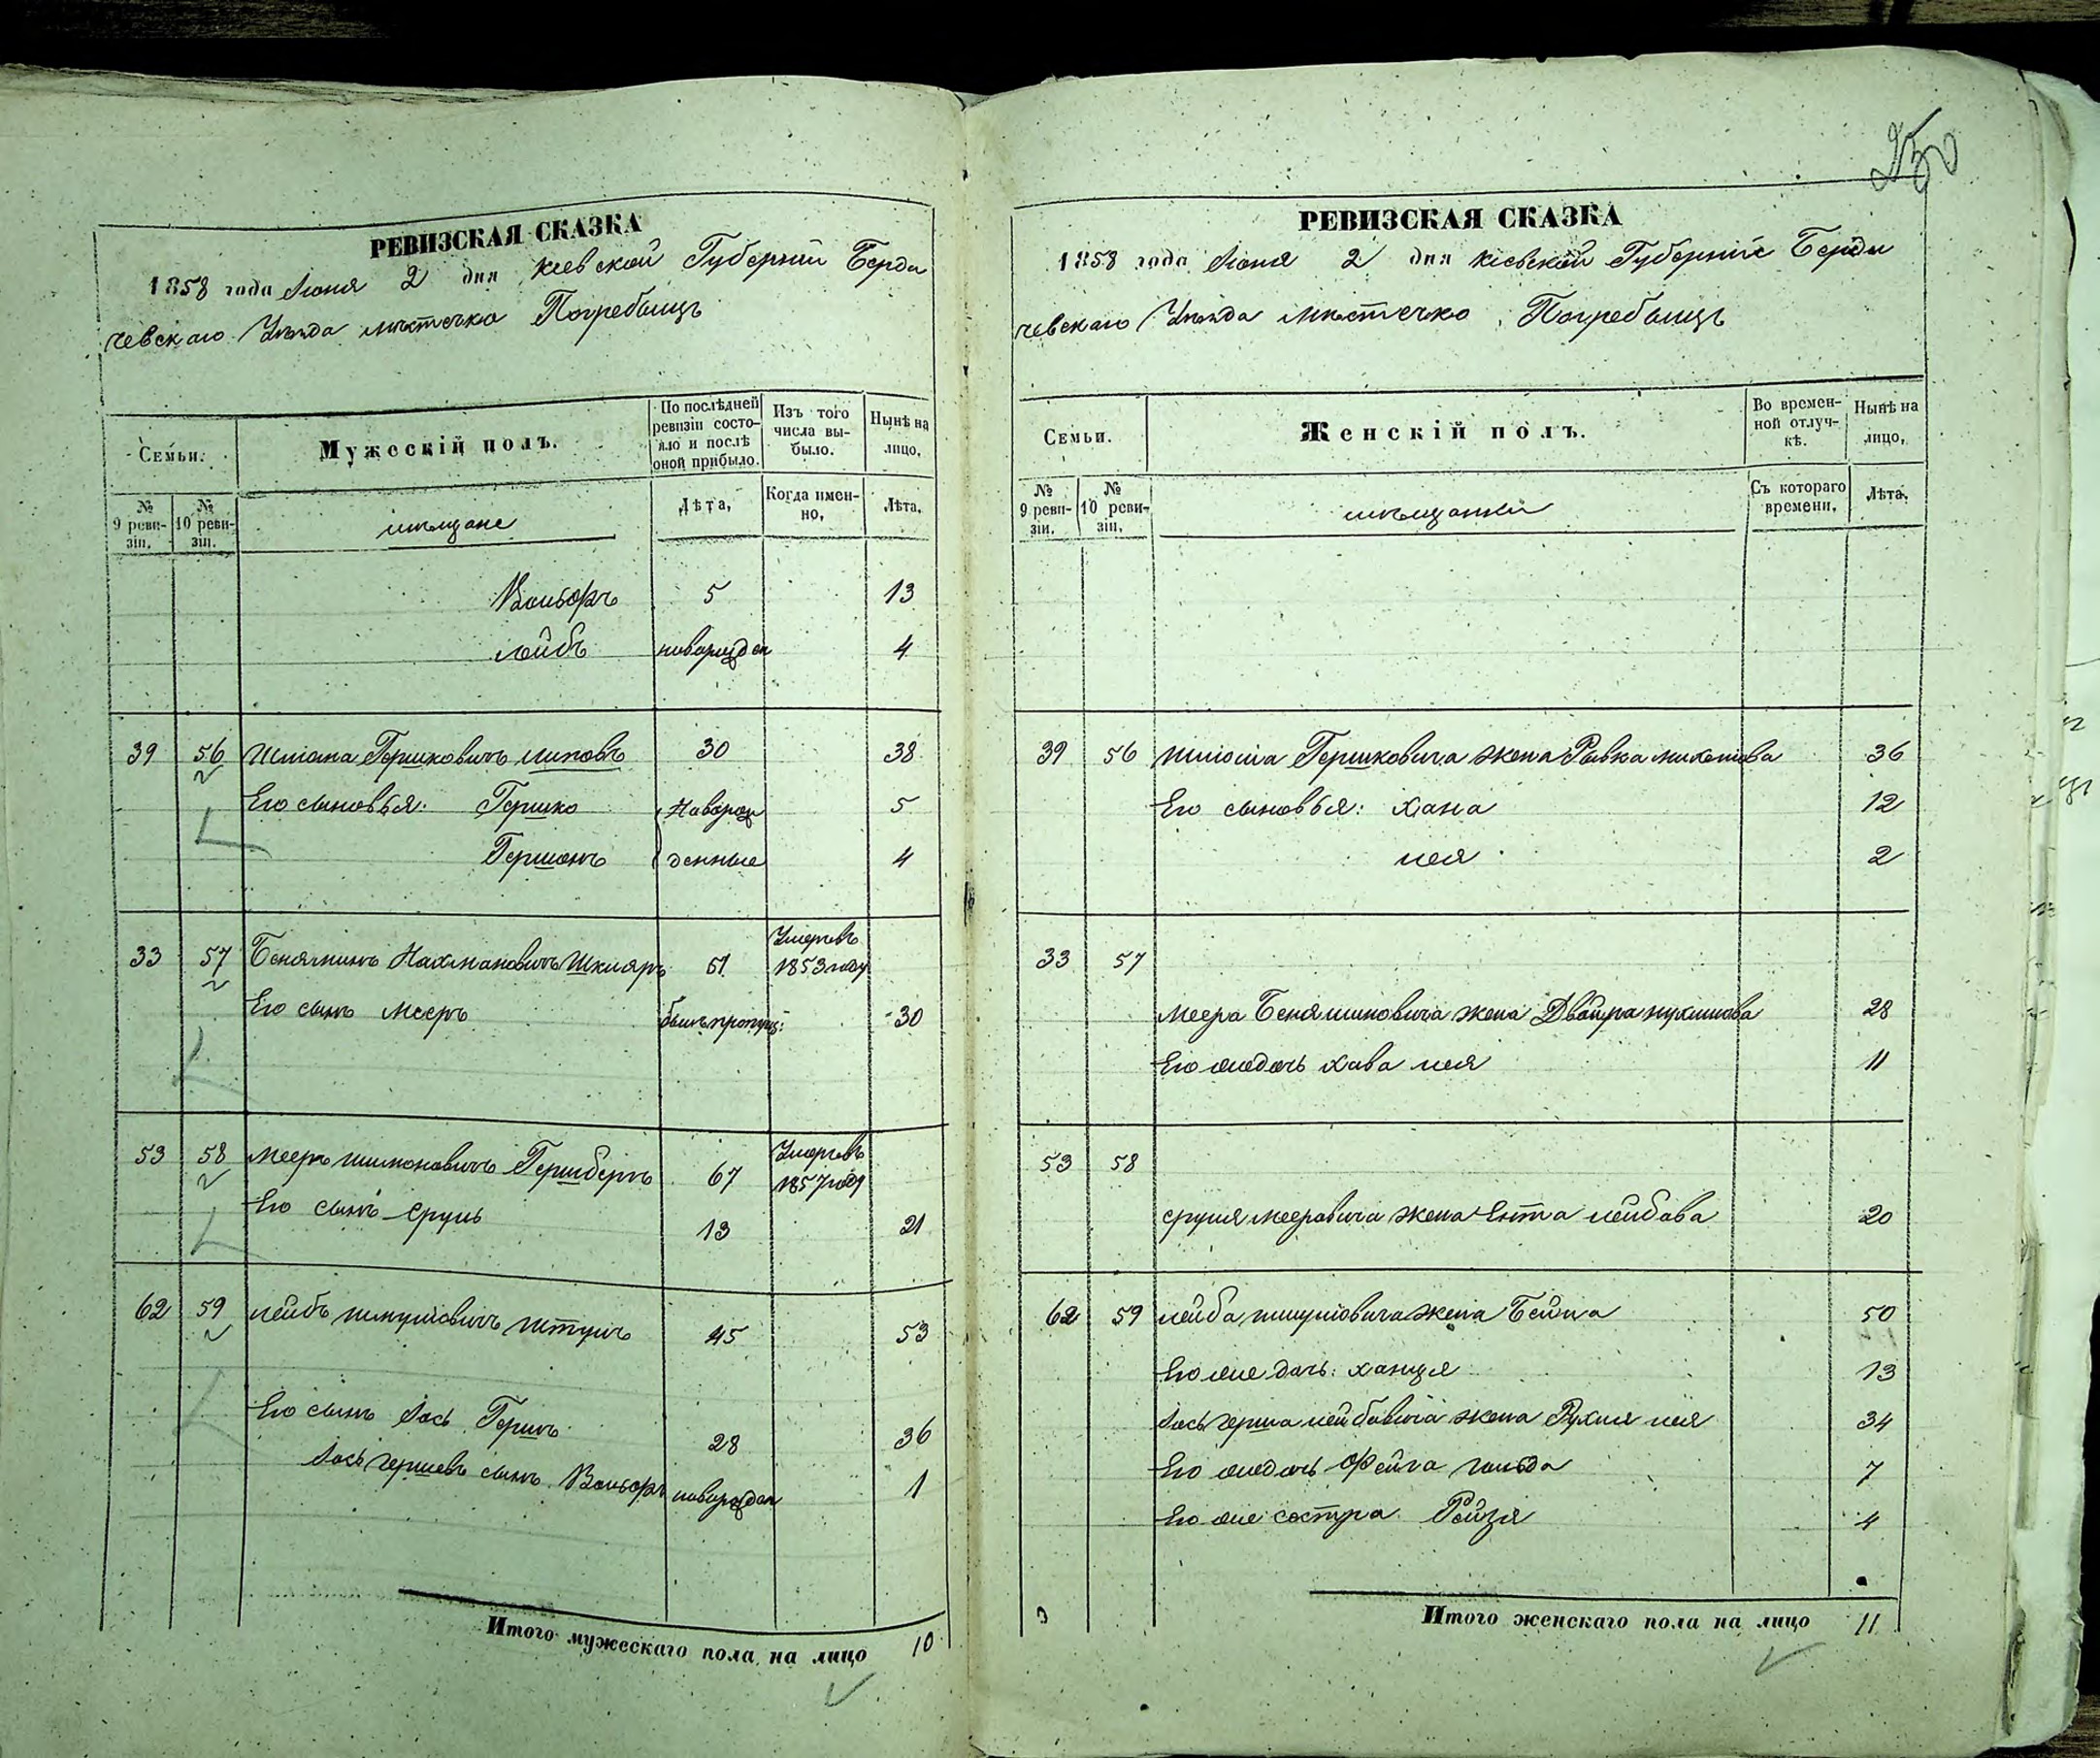 250
РЕВИЗСКАЯ СКАЗКА
1858 года Июня 2 дня Кіевской Губерніи Берди
чевскаго Уѣзда мѣстечка Погребищъ
Семьи.
Мужескій полъ.
По послѣдней ревизіи состояло и послѣ оной прибыло.
Изъ того числа выбыло.
Нынѣ на лицо.
№ 9 ревизіи.
№ 10 ревизіи.
мѣщане
Лѣта,
Когда именно,
Лѣта.
Вольфъ 5 13
Лейбъ новорожден 4
39 56 Гершковичъ Липовъ 30 38
Его сыновья: Гершко Новорож 5
Гершонъ денные 4
33 57 Беняминъ Нахмановичъ Шкляръ 61 Умеръ въ 1853 году
Его сынъ Мееръ былъ пропущ: 30
53 58 Мееръ Шимоновичъ Гершберъ 67 Умеръ въ 1857 году
Его сынъ Сруль 13 21
62 59 Лейбъ Шмулiовичъ 45 53
Его сынъ Іось Гершъ 28 36
Іось Гершевъ сынъ Вольфъ новорожден 1
Итого мужескаго пола на лицо 10
РЕВИЗСКАЯ СКАЗКА
1858 года Июня 2 дня Кіевской Губерніи Берди
чевскаго Уѣзда мѣстечко Погребищъ
Семьи.
Женскій полъ.
Во временной отлучкѣ.
Нынѣ на лицо,
№ 9 ревизіи.
№ 10 ревизіи.
мѣщанки
Съ котораго времени.
Лѣта.
39 56 Гершковича жена Ривка 36
Его сыновья: Хана 12
Лея 2
33 57
Меера Беняминовича жена Двойра 28
Его же дочь Хава Лея 11
53 58
Сруля Мееровича жена Ента Лейбова 20
62 59 Лейба Шмулiовича жена Бейла 50
Его же дочь: Ханця 13
Іось Герша Лейбовича жена Рухля Лея 34
Его же дочь Фейга Гольда 7
Его же сестра Ройзя 4
Итого женскаго пола на лицо 11